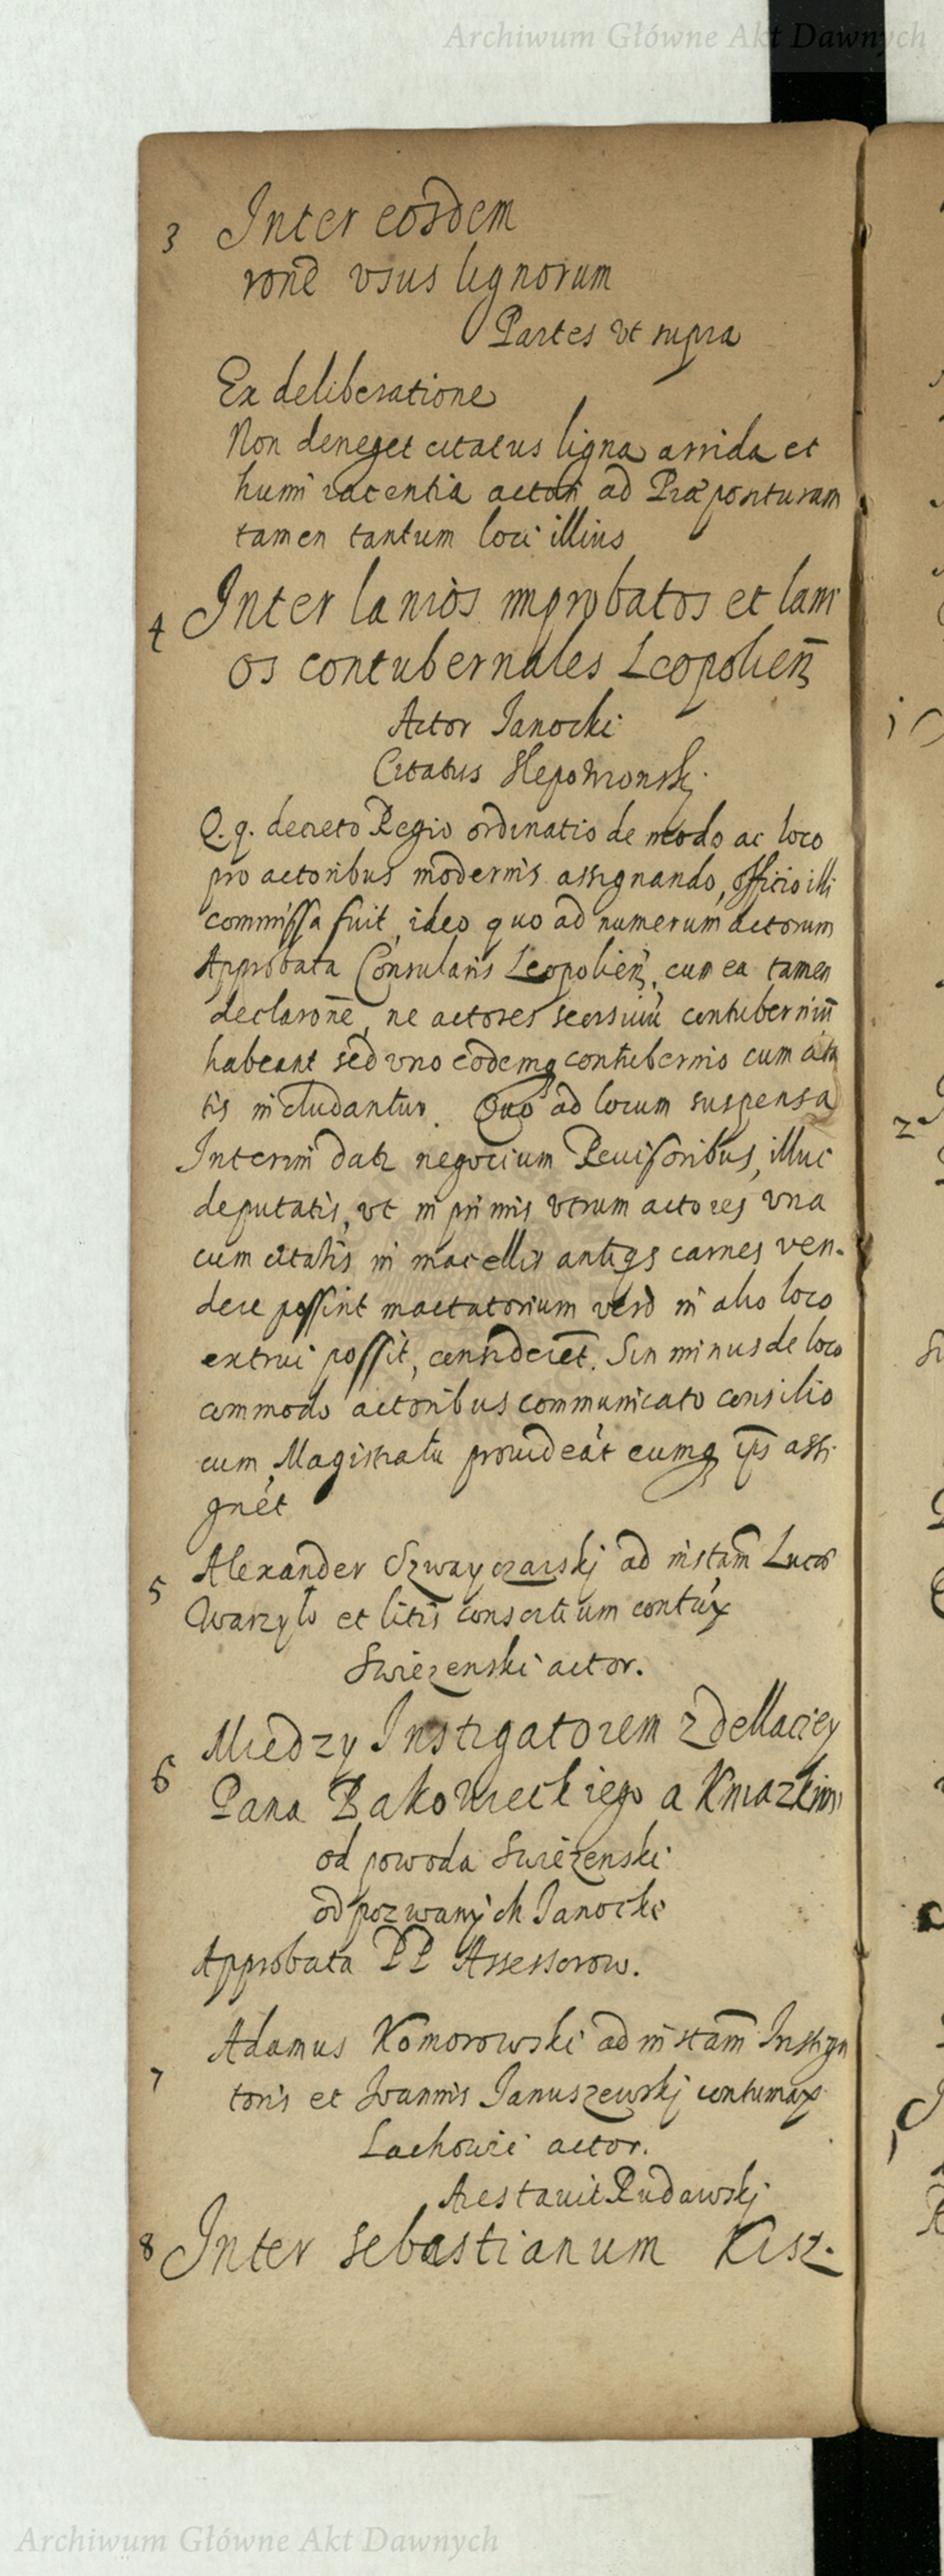 Archiwum Główne Akt Dawnych
3 Inter eosdem
rone vsus lignorum
Partes vt supra
Ex deliberatione
Non deneget citatus ligna arrida et
humi iacentia actori ad Præposituram
tamen tantum loci illius
4 Inter lanios improbatos et lani
os contubernales Leopolien
Actor Janocki
Citatus Slepowronskj
Q. q. decreto Regio ordinatio de modo ac loco
pro actoribus modernis assignando, officio illi
commissa fuit, ideo quo ad numerum actorum
Approbata Consularis Leopolien, cum ea tamen
declarone, ne actores seorsiuu contuberniu
habeant sed vno eodemq contubernio cum cita
tis includantur. Quo ad locum suspensa
Interim datr negocium Reuisoribus, illuc
deputatis, vt in primis vtrum actores vna
cum citatis in macellis antiqs carnes ven-
dere possint mactatorium vero in alio loco
extrui possit, consideret. Sin minus de loco
commodo actoribus communicato consilio
cum Magistratu prouideat eumq ips assi
gnet
5 Alexander Szwayczarskj ad instam Lucæ
Warzylo et litis consortium contux
Swiezenski actor.
6 Miedzy Instigatorem z dellaciey
Pana Bakowieckiego a Kniazkim
od powoda Swiezenski
od pozwanych Janocki
Approbata PP Assessorow.
7 Adamus Komorowski ad instam Instiga
toris et Joannis Januszewskj contumax
Lachowic actor.
Arestauit Rudawskj
8 Inter Sebastianum Kisz-
Archiwum Główne Akt Dawnych